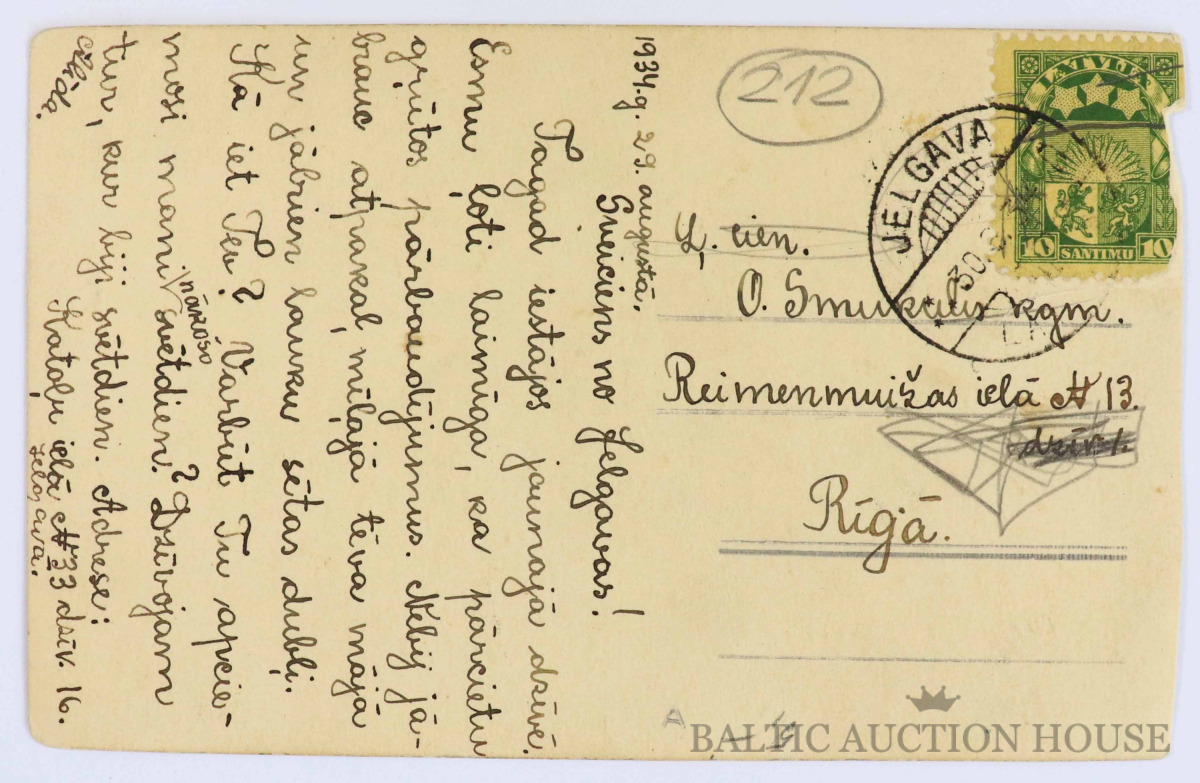 1934.g. 29. augustā,
Sveiciens no Jelgavas!
Tagad iestājos jaunajā dzīvē.
Esmu ļoti laimīga, ka pārcietu
grūtos pārbaudījumus. Nebij jā-
brauc atpakaļ mīļajā tēva mājā
un jābrien lauku sētas dubļi.
Kā iet Tev? Varbūt Tu apcie-
mosi mani nākošo svētdien? Dzīvojam
tur, kur bij svētdien. Adrese:
Katoļu ielā № 33 dzīv. 16.
Jelgava.
212
LATVIJA
10 10
SANTIMU
JELGAVA
30
Ļ. cien.
O. Smukulis kgm.
Reimenmuižas ielā № 13.
dzīv. 1.
Rīgā.
A
BALTIC AUCTION HOUSE